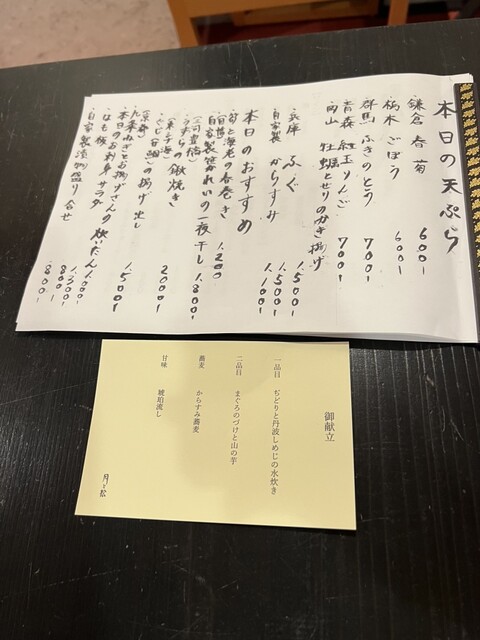 本日の天ぷら
鎌倉 春菊 600-
栃木 ごぼう 600-
群馬 ふきのとう 700-
青森 紅玉りんご 700-
岡山 牡蠣とせりのかき揚げ
兵庫 ふぐ 1.500-
自家製 からすみ 1.500-
1.100-
本日のおすすめ
筍と海老の春巻き 1.200
自家製笹かれいの一夜干し 1.800-
うずらの鍬焼き 2000-
ぐじの揚げ出し 1.500-
九条ねぎとお揚げさんの炊いたん 1.000-
本日のお刺身サラダ 1.300-
はも板 800-
自家製漬物盛り合せ 800-
御献立
一品目 ぢどりと丹波しめじの水炊き
二品目 まぐろのづけと山の芋
蕎麦 からすみ蕎麦
甘味 琥珀流し